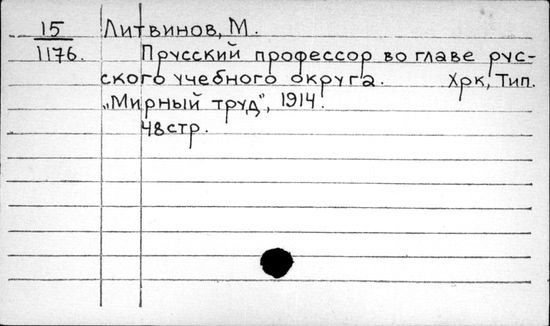 15 Литвинов, М.
1176. Прусский профессор во главе рус-
ского учебного округа. Хрк, Тип.
„Мирный труд", 1914.
48 стр.